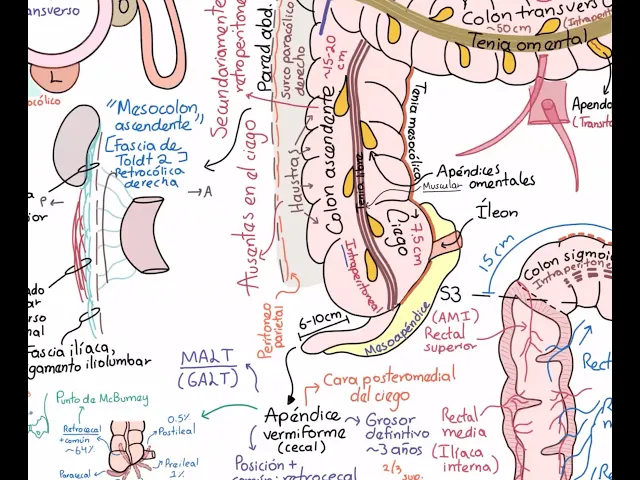 ansverso
D
L
ocólico
"Mesocolon
ascendente"
[Fascia de
Toldt 2]
retrocólica
derecha
P
A
rior
ado
ar
rso
nal
Fascia ilíaca,
gamento iliolumbar
Secundariamente
retroperitone
Pared abd.
surco paracólico
derecho
Ausentes en el ciego
Haustras
Colon ascendente ~15-20
cm
Tenia libre
Tenia mesocólica
Ciego
7.5 cm
Intraperitoneal
Peritoneo
parietal
6-10cm
Mesoapéndice
Colon transverso
~50 cm
(Intraperit
Tenia omental
Apend
(Transito
Apéndices
Muscular omentales
Íleon
15 cm
S3
Colon sigmoi
Intraperiton
(AMI)
Rectal
superior
Rect
Rectal
media
(Ilíaca
interna)
Re
MALT
(GALT)
Cara posteromedial
del ciego
Apéndice
vermiforme
(cecal)
Grosor
definitivo
~3 años
2/3
sup.
Posición +
común: retrocecal
Punto de McBurney
Retrocecal
+común
~64%
0.5%
Postileal
Preileal
1%
Paracecal